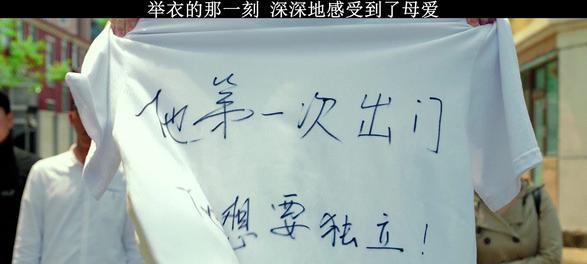 举衣的那一刻 深深地感受到了母爱
他第一次出门
想要独立！